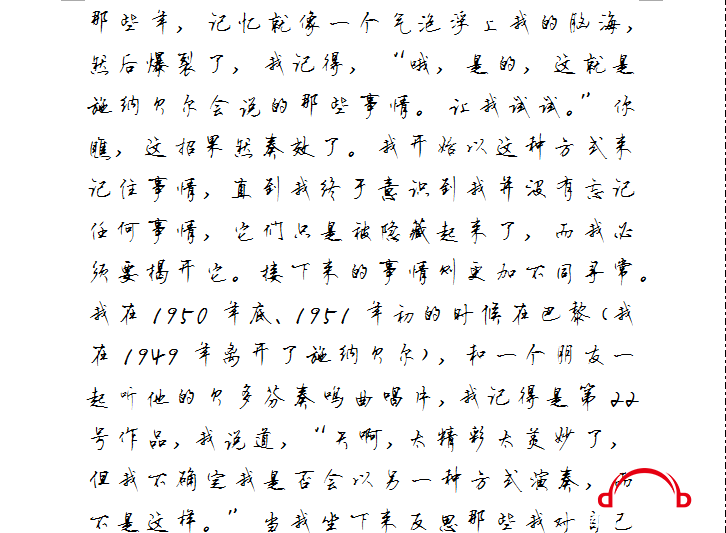 那些年，记忆就像一个气泡浮上我的脑海，
然后爆裂了，我记得，“哦，是的，这就是
施纳贝尔会说的那些事情。让我试试。”你
瞧，这招果然奏效了。我开始以这种方式来
记住事情，直到我终于意识到我并没有忘记
任何事情，它们只是被隐藏起来了，而我必
须要揭开它。接下来的事情则更加不同寻常。
我在1950年底、1951年初的时候在巴黎（我
在1949年离开了施纳贝尔），和一个朋友一
起听他的贝多芬奏鸣曲唱片，我记得是第22
号作品，我说道，“天啊，太精彩太美妙了，
但我不确定我是否会以另一种方式演奏，而
不是这样。”当我坐下来反思那些我对自己